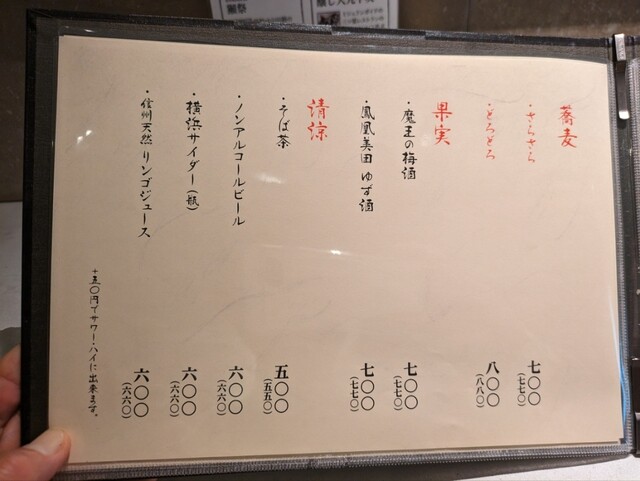 蕎麦
・さらさら 七〇〇(七七〇)
・とろとろ 八〇〇(八八〇)
果実
・魔王の梅酒 七〇〇(七七〇)
・鳳凰美田 ゆず酒 七〇〇(七七〇)
清涼
・そば茶 五〇〇(五五〇)
・ノンアルコールビール 六〇〇(六六〇)
・横浜サイダー(瓶) 六〇〇(六六〇)
・信州天然 リンゴジュース 六〇〇(六六〇)
+五〇円でサワー・ハイに出来ます。